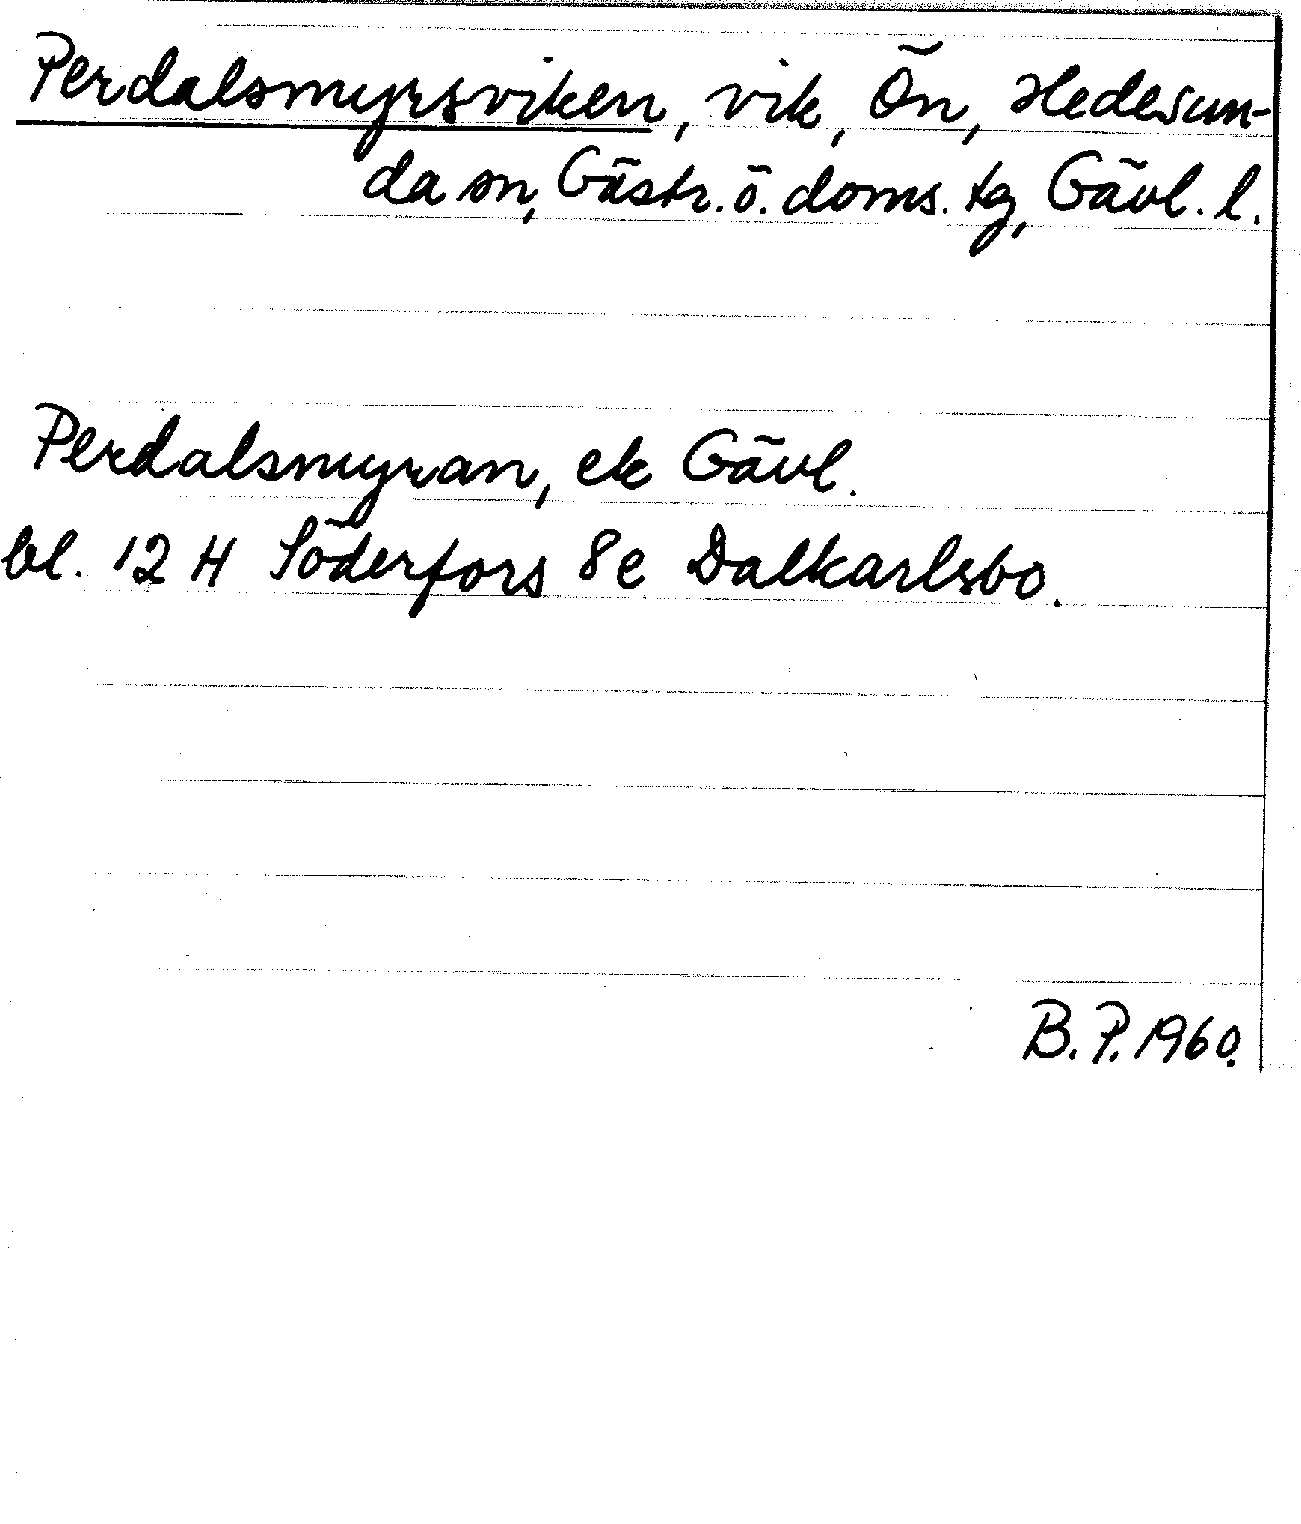 Perdalsmyrsviken, vik, Ön, Hedesun-
da sn, Gästr. ö. doms. tg, Gävl. l.
Perdalsmyran, ek Gävl.
bl. 12 H Söderfors 8e Dalkarlsbo.
B. P. 1960.